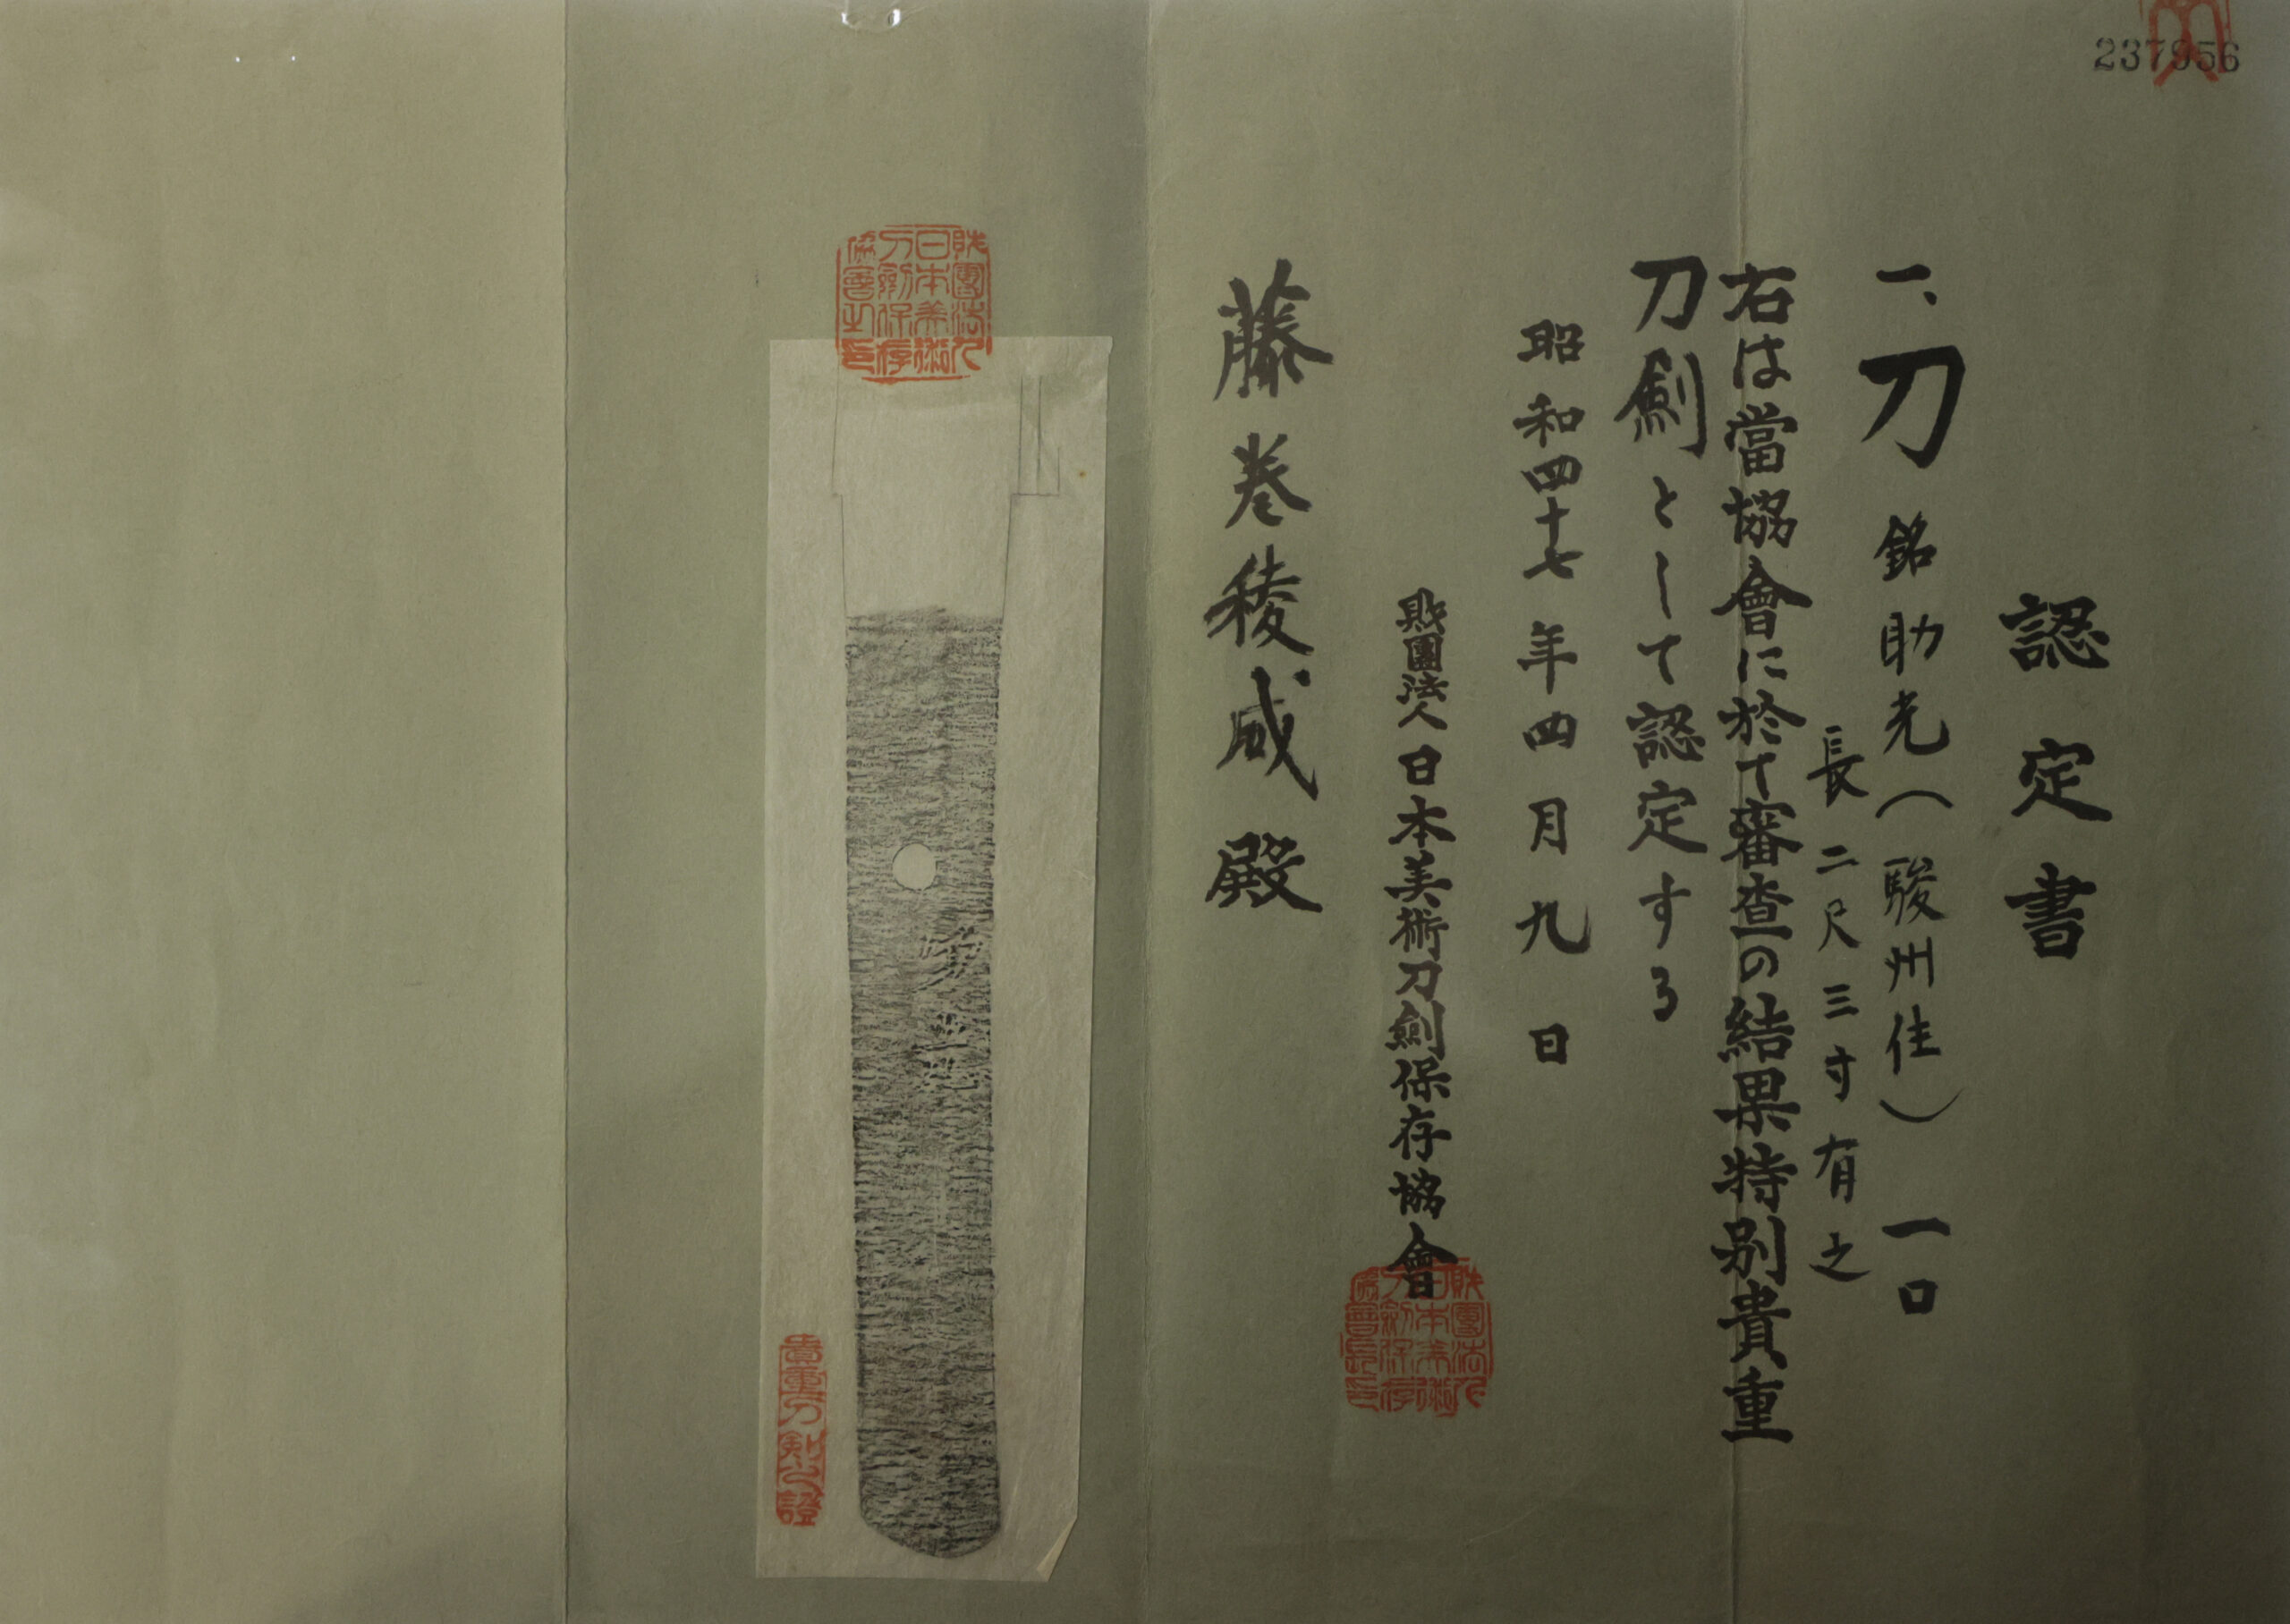 237956
認定書
一、刀 銘 助光(駿州住) 一口
長二尺三寸有之
右は當協會に於て審査の結果特別貴重
刀劍として認定する
昭和四十七年四月九日
財團法人日本美術刀劍保存協會
財團法人日本美術刀劍保存協會長印
藤巻稜威殿
財團法人日本美術刀劍保存協會之印
助光
貴重刀剣之證